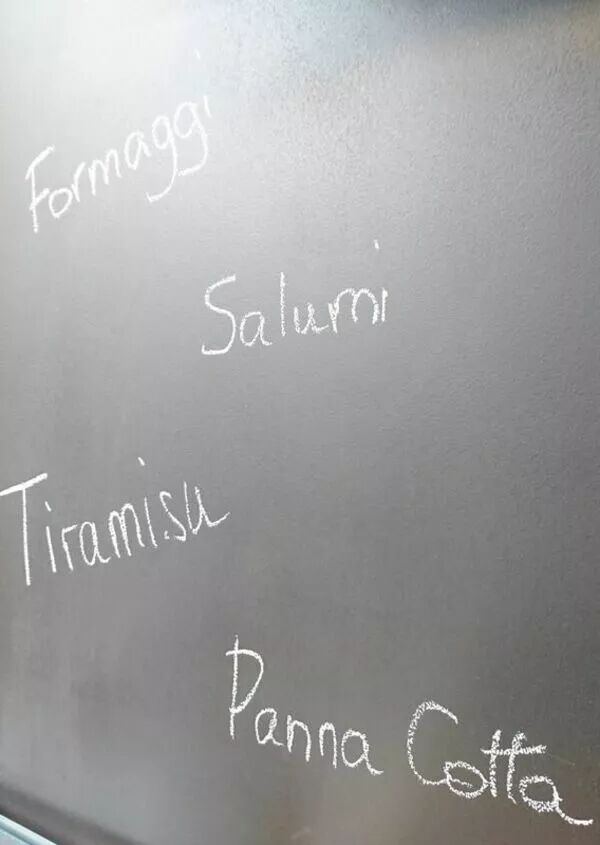 Formaggi
Salumi
Tiramisu
Panna Cotta